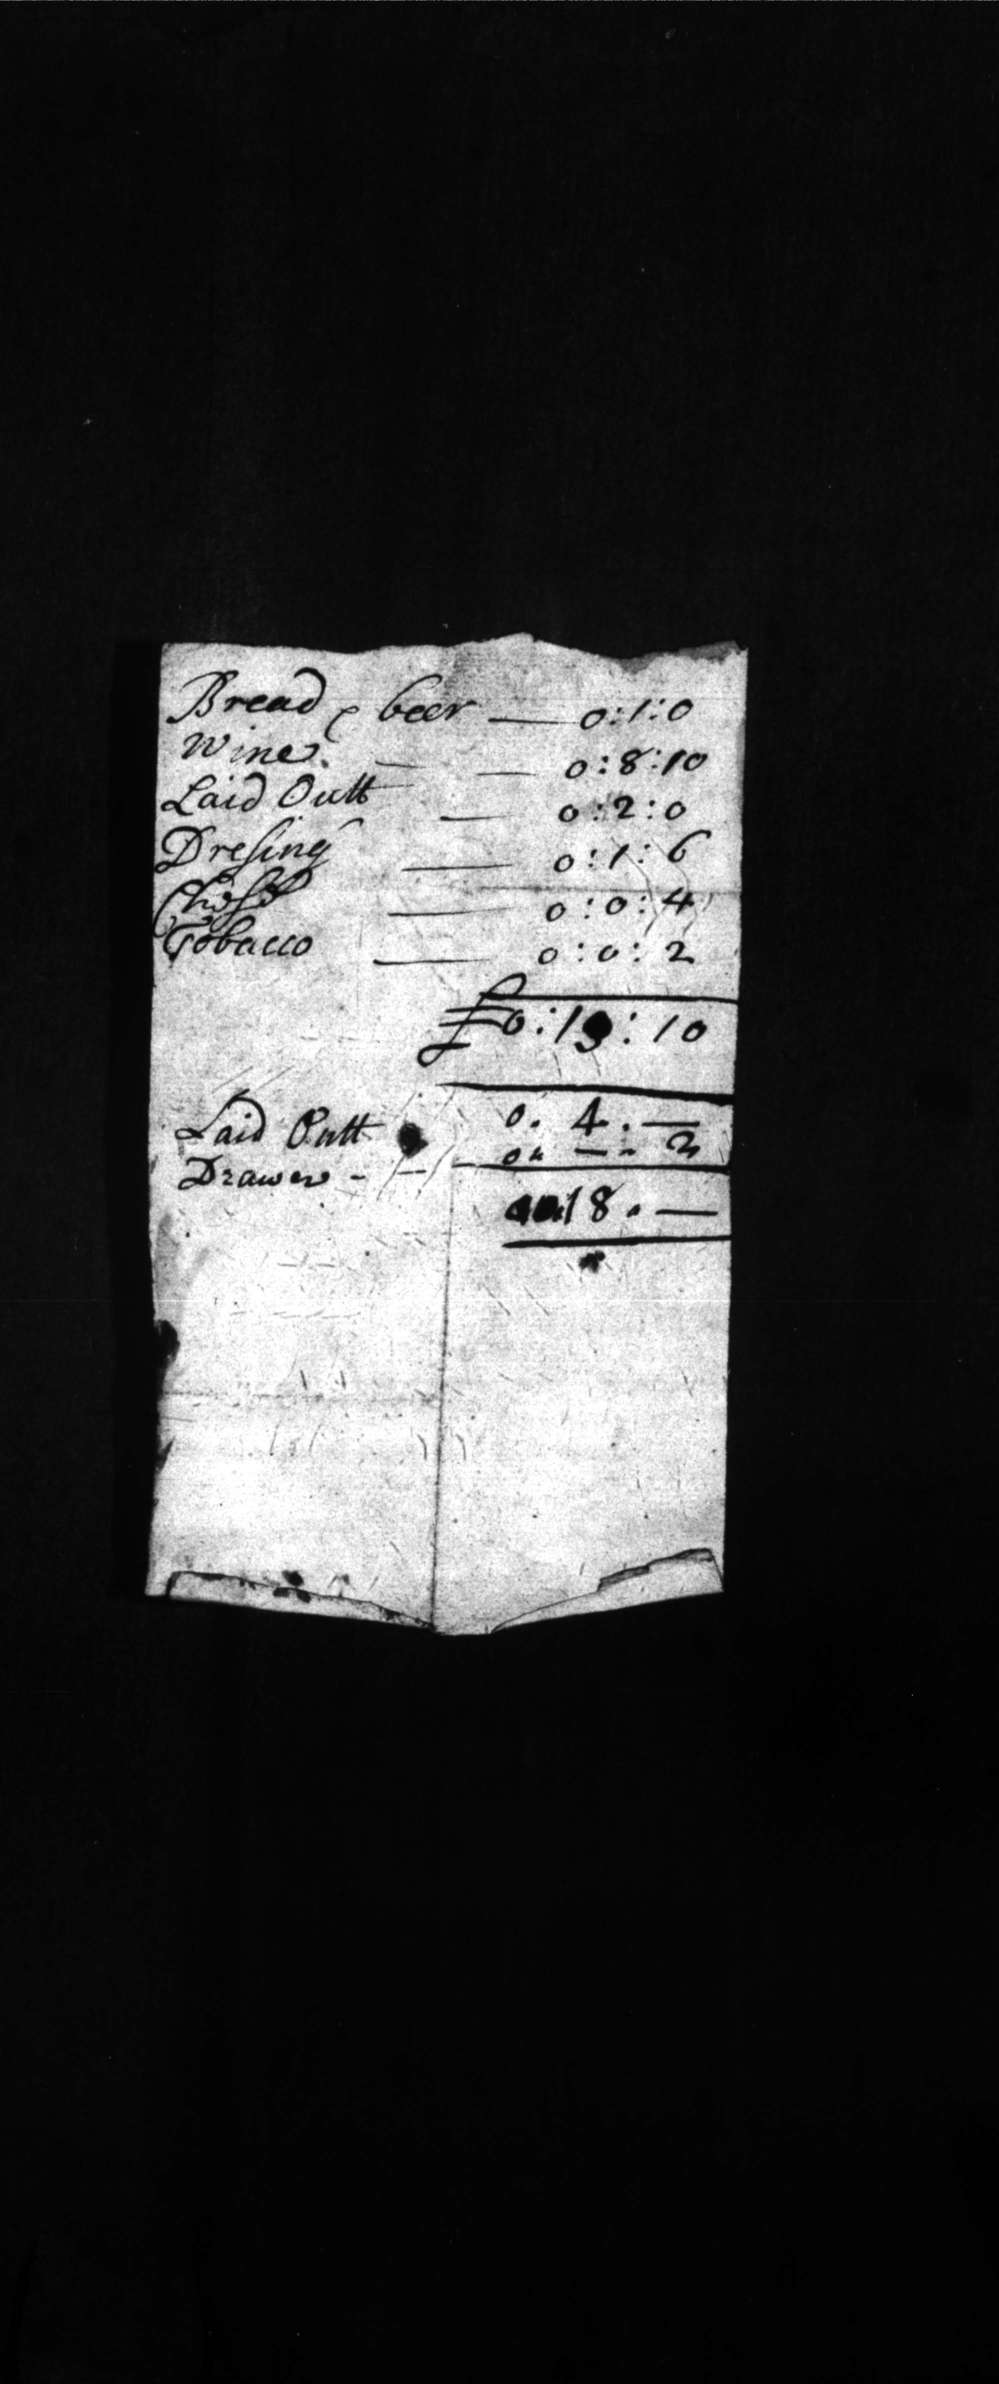 Bread & beer — 0:1:0
Wine. — — 0:8:10
Laid Outt — 0:2:0
Dresing — 0:1:6
Chese — 0:0:4
Tobacco — 0:0:2
£0:13:10
Laid Outt 0. 4. —
Drawer - — 0" — - 2
18. —